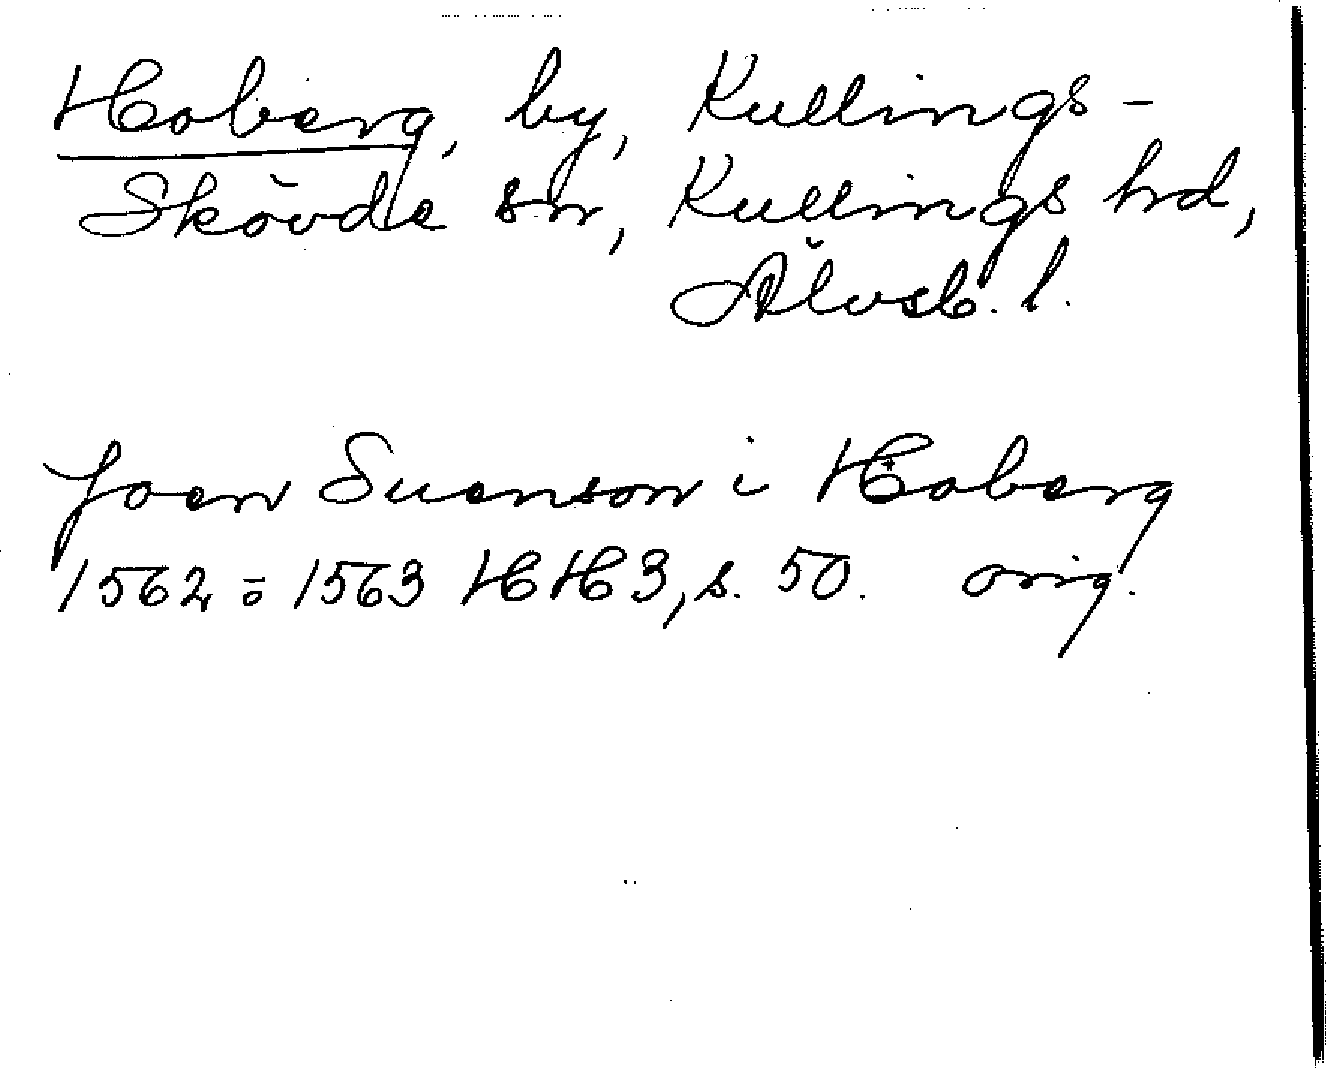 Hoberg, by, Kullings-
Skövde sn, Kullings hd,
Älvsb. l.
Joen Suenson i Hoberg
1562 ö 1563 HH3, s. 50. orig.